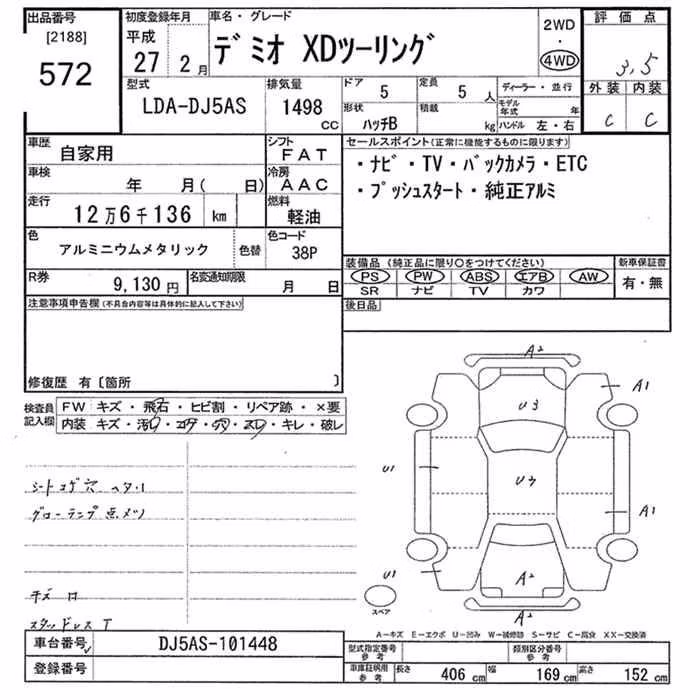 出品番号 初度登録年月 車名・グレード 評価点
[2188] 平成 デミオ XDツーリング 2WD
・
572 27 2月 4WD 3.5
型式 排気量 ドア 定員 ディーラー・並行 外装 内装
LDA-DJ5AS 1498 5 5人 モデル年式 年 C C
CC 形状 ハッチB 積載 kg ハンドル 左・右
車歴 自家用 シフト FAT セールスポイント(正常に機能するものに限ります)
車検 年 月( 日) 冷房 AAC ・ナビ・TV・バックカメラ・ETC
走行 12万6千136 km 燃料 軽油 ・プッシュスタート・純正アルミ
色 アルミニウムメタリック 色替 色コード 38P
装備品(純正品に限り〇をつけてください) 新車保証書
R券 9,130円 名変通知期限 月 日 PS PW ABS エアB AW 有・無
SR ナビ TV カワ
注意事項申告欄(不具合内容等は具体的に記入して下さい) 後日品
修復歴 有〔箇所 〕
検査員記入欄 FW キズ・飛石・ヒビ割・リペア跡・×要
内装 キズ・汚レ・コゲ・穴・スレ・キレ・破レ
A2
U3 A1
U1 U3
シートコゲ穴 ヘタリ
グローランプ点メツ A1
U1 A2
キズ
スペア
スタッドレス T A2
A-キズ E-エクボ U-凹み W-補修跡 S-サビ C-腐食 XX-交換済
車台番号 DJ5AS-101448 型式指定番号 参考 類別区分番号 参考
登録番号 車庫証明用 参考 長さ 406cm 幅 169cm 高さ 152cm